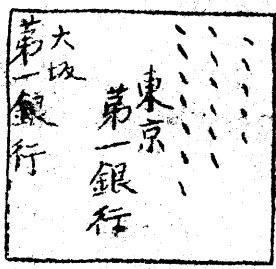 東京
第一銀行
大坂
第一銀行